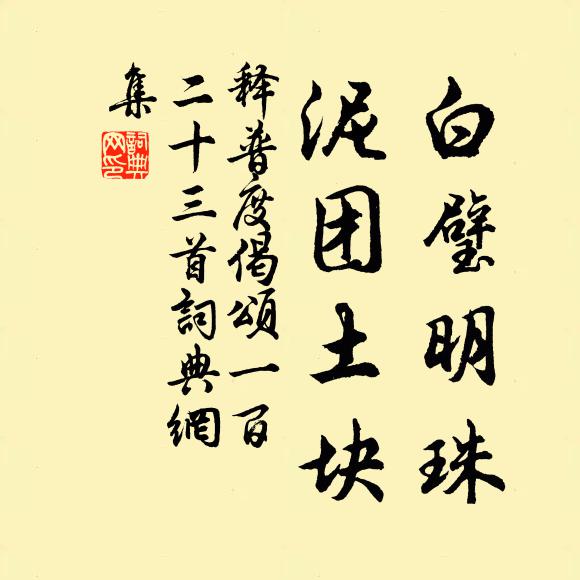 白璧明珠
泥团土块
释普度偈颂一百
二十三首詞典網
集
詞典
网印